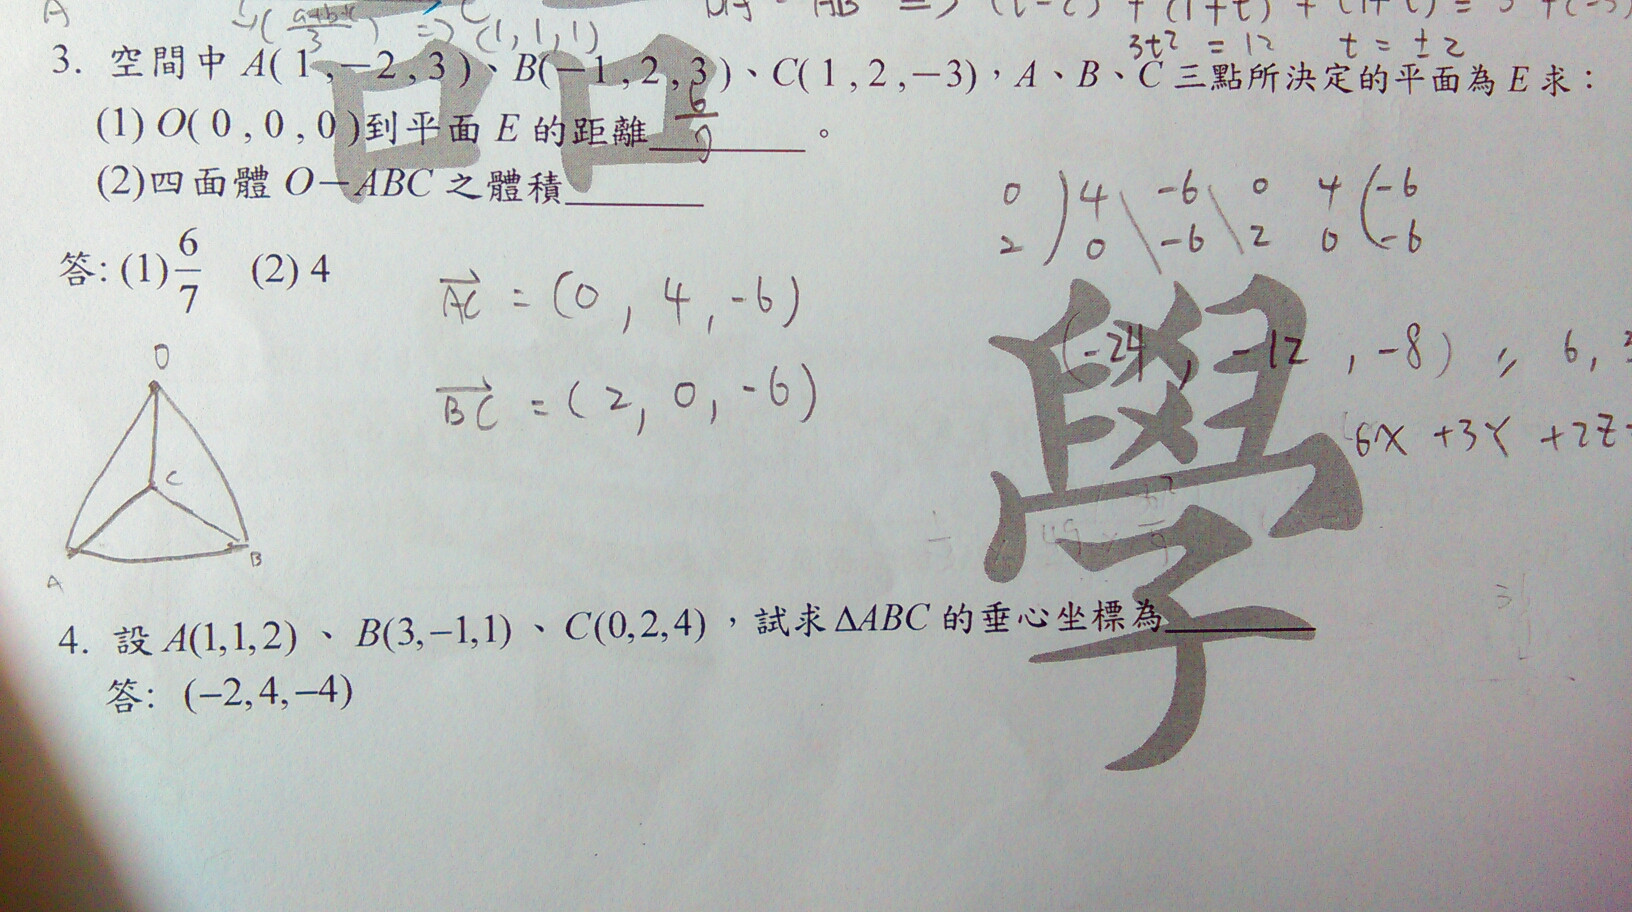 A
(a+b+c/3) => (1,1,1)
3t² = 12 t = ±2
3. 空間中 A(1,−2,3)、B(−1,2,3)、C(1,2,−3),A、B、C 三點所決定的平面為 E 求:
(1) O(0,0,0)到平面 E 的距離 6/7 。
(2)四面體 O−ABC 之體積
0 4 -6 0 4 -6
2 0 -6 2 0 -6
答: (1) 6/7 (2) 4
AC = (0, 4, -6)
BC = (2, 0, -6)
(-24, -12, -8) // 6, 3
6x +3Y +2Z
O
C
A
B
學
4. 設 A(1,1,2) 、 B(3,−1,1) 、 C(0,2,4) ,試求 ΔABC 的垂心坐標為
答: (−2,4,−4)